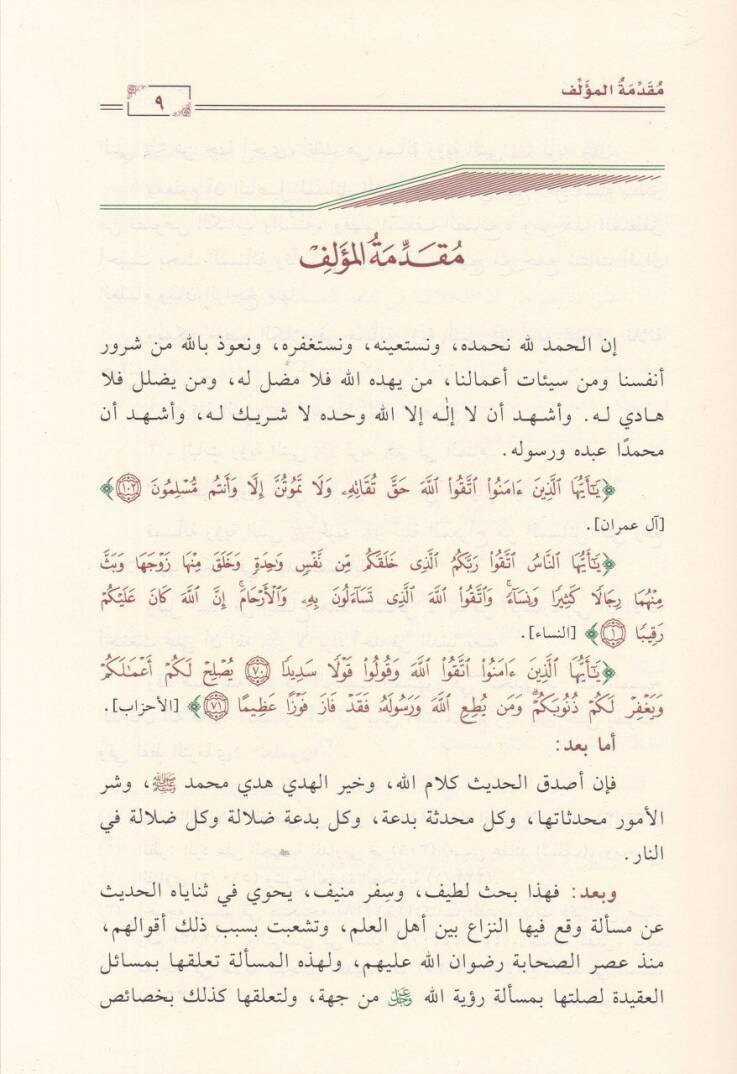 مُقَدِّمَةُ المؤَلِّف
٩
مُقَدِّمَةُ المُؤَلِّفِ
إن الحمد لله نحمده، ونستعينه، ونستغفره، ونعوذ بالله من شرور
أنفسنا ومن سيئات أعمالنا، من يهده الله فلا مضل له، ومن يضلل فلا
هادي له. وأشهد أن لا إلٰه إلا الله وحده لا شريك له، وأشهد أن
محمدًا عبده ورسوله.
﴿يَٰٓأَيُّهَا ٱلَّذِينَ ءَامَنُوا۟ ٱتَّقُوا۟ ٱللَّهَ حَقَّ تُقَاتِهِۦ وَلَا تَمُوتُنَّ إِلَّا وَأَنتُم مُّسْلِمُونَ ١٠٢﴾
[آل عمران].
﴿يَٰٓأَيُّهَا ٱلنَّاسُ ٱتَّقُوا۟ رَبَّكُمُ ٱلَّذِى خَلَقَكُم مِّن نَّفْسٍ وَٰحِدَةٍ وَخَلَقَ مِنْهَا زَوْجَهَا وَبَثَّ
مِنْهُمَا رِجَالًا كَثِيرًا وَنِسَآءً ۚ وَٱتَّقُوا۟ ٱللَّهَ ٱلَّذِى تَسَآءَلُونَ بِهِۦ وَٱلْأَرْحَامَ ۚ إِنَّ ٱللَّهَ كَانَ عَلَيْكُمْ
رَقِيبًا ١﴾ [النساء].
﴿يَٰٓأَيُّهَا ٱلَّذِينَ ءَامَنُوا۟ ٱتَّقُوا۟ ٱللَّهَ وَقُولُوا۟ قَوْلًا سَدِيدًا ٧٠ يُصْلِحْ لَكُمْ أَعْمَٰلَكُمْ
وَيَغْفِرْ لَكُمْ ذُنُوبَكُمْ ۗ وَمَن يُطِعِ ٱللَّهَ وَرَسُولَهُۥ فَقَدْ فَازَ فَوْزًا عَظِيمًا ٧١﴾ [الأحزاب].
أما بعد:
فإن أصدق الحديث كلام الله، وخير الهدي هدي محمد ﷺ، وشر
الأمور محدثاتها، وكل محدثة بدعة، وكل بدعة ضلالة وكل ضلالة في
النار.
وبعد: فهذا بحث لطيف، وسِفر منيف، يحوي في ثناياه الحديث
عن مسألة وقع فيها النزاع بين أهل العلم، وتشعبت بسبب ذلك أقوالهم،
منذ عصر الصحابة رضوان الله عليهم، ولهذه المسألة تعلقها بمسائل
العقيدة لصلتها بمسألة رؤية الله عَزَّ وَجَلَّ من جهة، ولتعلقها كذلك بخصائص